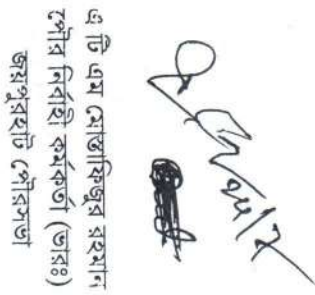 ২৮/২
এ টি এম মোস্তাফিজুর রহমান
পৌর নির্বাহী কর্মকর্তা (ভারঃ)
জয়পুরহাট পৌরসভা